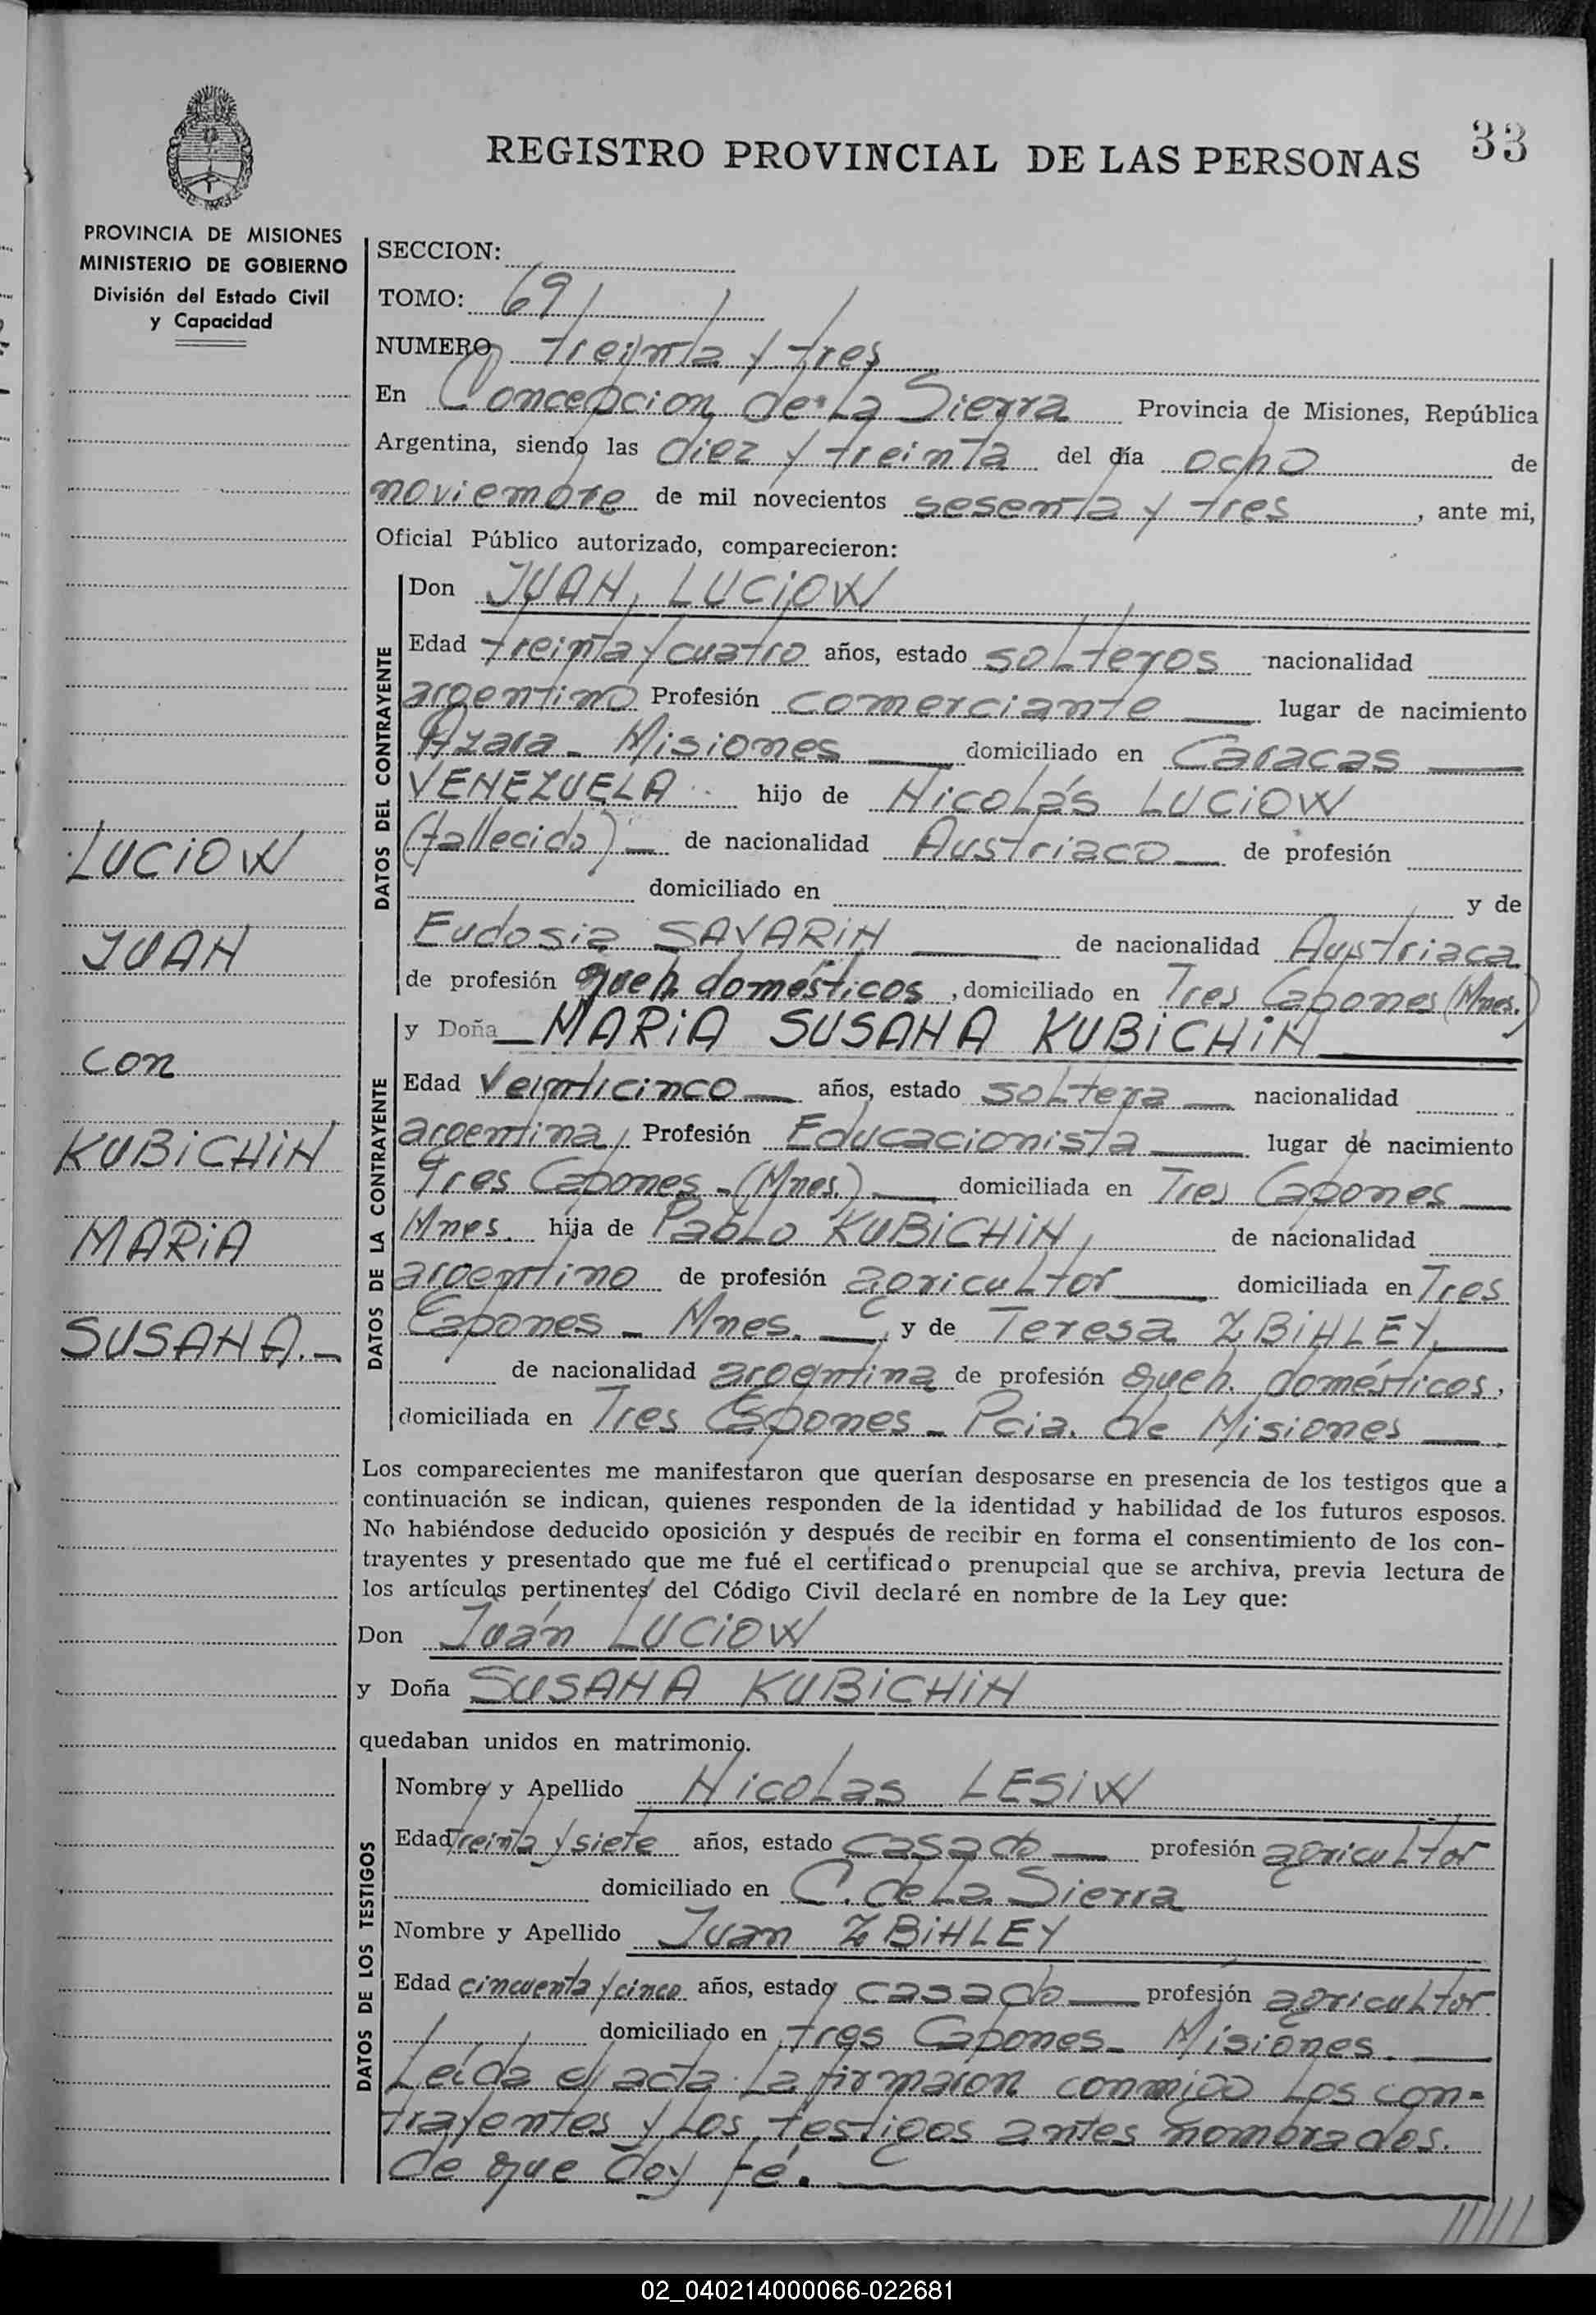 33
REGISTRO PROVINCIAL DE LAS PERSONAS
PROVINCIA DE MISIONES
MINISTERIO DE GOBIERNO
División del Estado Civil
y Capacidad
LUCIOW
JUAN
con
KUBICHIN
MARIA
SUSANA.-
SECCION:
TOMO: 69
NUMERO treinta y tres
En Concepcion de La Sierra Provincia de Misiones, República
Argentina, siendo las diez y treinta del día ocho de
noviembre de mil novecientos sesenta y tres, ante mi,
Oficial Público autorizado, comparecieron:
DATOS DEL CONTRAYENTE
Don JUAN, LUCIOW
Edad treinta y cuatro años, estado solteros nacionalidad
argentino Profesión comerciante lugar de nacimiento
Azara - Misiones domiciliado en Caracas
VENEZUELA hijo de Nicolás LUCIOW
(fallecido) - de nacionalidad Austriaco de profesión
domiciliado en y de
Eudosia SAVARIN de nacionalidad Austriaca
de profesión queh. domésticos, domiciliado en Tres Capones (Mnes.)
DATOS DE LA CONTRAYENTE
y Doña MARIA SUSANA KUBICHIN
Edad Veinticinco años, estado soltera nacionalidad
argentina, Profesión Educacionista lugar de nacimiento
Tres Capones - (Mnes.) domiciliada en Tres Capones
Mnes. hija de Pablo KUBICHIN, de nacionalidad
argentino de profesión agricultor domiciliada en Tres
Capones - Mnes. y de Teresa ZBIHLEY,
de nacionalidad argentina de profesión queh. domésticos,
domiciliada en Tres Capones - Pcia. de Misiones
Los comparecientes me manifestaron que querían desposarse en presencia de los testigos que a
continuación se indican, quienes responden de la identidad y habilidad de los futuros esposos.
No habiéndose deducido oposición y después de recibir en forma el consentimiento de los con-
trayentes y presentado que me fué el certificado prenupcial que se archiva, previa lectura de
los artículos pertinentes del Código Civil declaré en nombre de la Ley que:
Don Juán LUCIOW
y Doña SUSANA KUBICHIN
quedaban unidos en matrimonio.
DATOS DE LOS TESTIGOS
Nombre y Apellido Nicolas LESIW
Edad treinta y siete años, estado casado profesión agricultor
domiciliado en C. de La Sierra
Nombre y Apellido Juan ZBIHLEY
Edad cincuenta y cinco años, estado casado profesión agricultor.
domiciliado en tres Capones - Misiones.
Leída el acta la firmaron conmigo los con-
trayentes y los testigos antes nombrados.
de que doy fé.
02_040214000066-022681